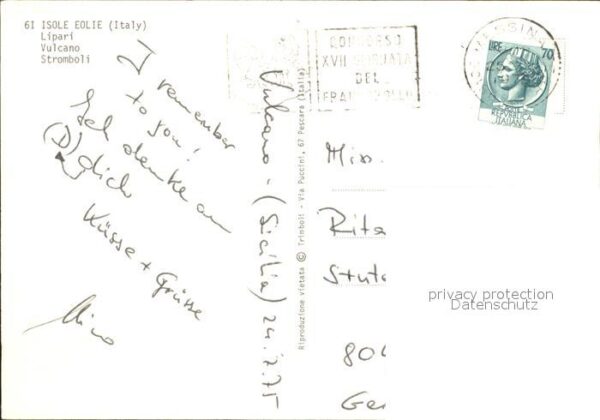 61 ISOLE EOLIE (Italy)
Lipari
Vulcano
Stromboli
I remember
to you!
Ich denke an
(D) dich
Küsse + Grüsse
Nino
Vulcano - (Sicilia) 24.7.75
Riproduzione vietata © Trimboli - Via Puccini, 67 Pescara (Italia)
CONCORSO
XVII GIORNATA
DEL
FRANCOBOLLO
MESSINA
LIRE 70
POSTE
REPVBBLICA
ITALIANA
Miss.
Rita
Stut
privacy protection
Datenschutz
80
Ge